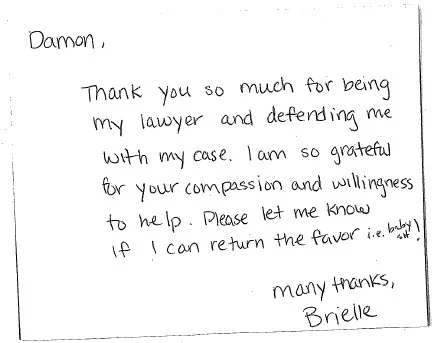 Damon,
Thank you so much for being
my lawyer and defending me
with my case. I am so grateful
for your compassion and willingness
to help. Please let me know
if I can return the favor i.e. baby sit!
many thanks,
Brielle